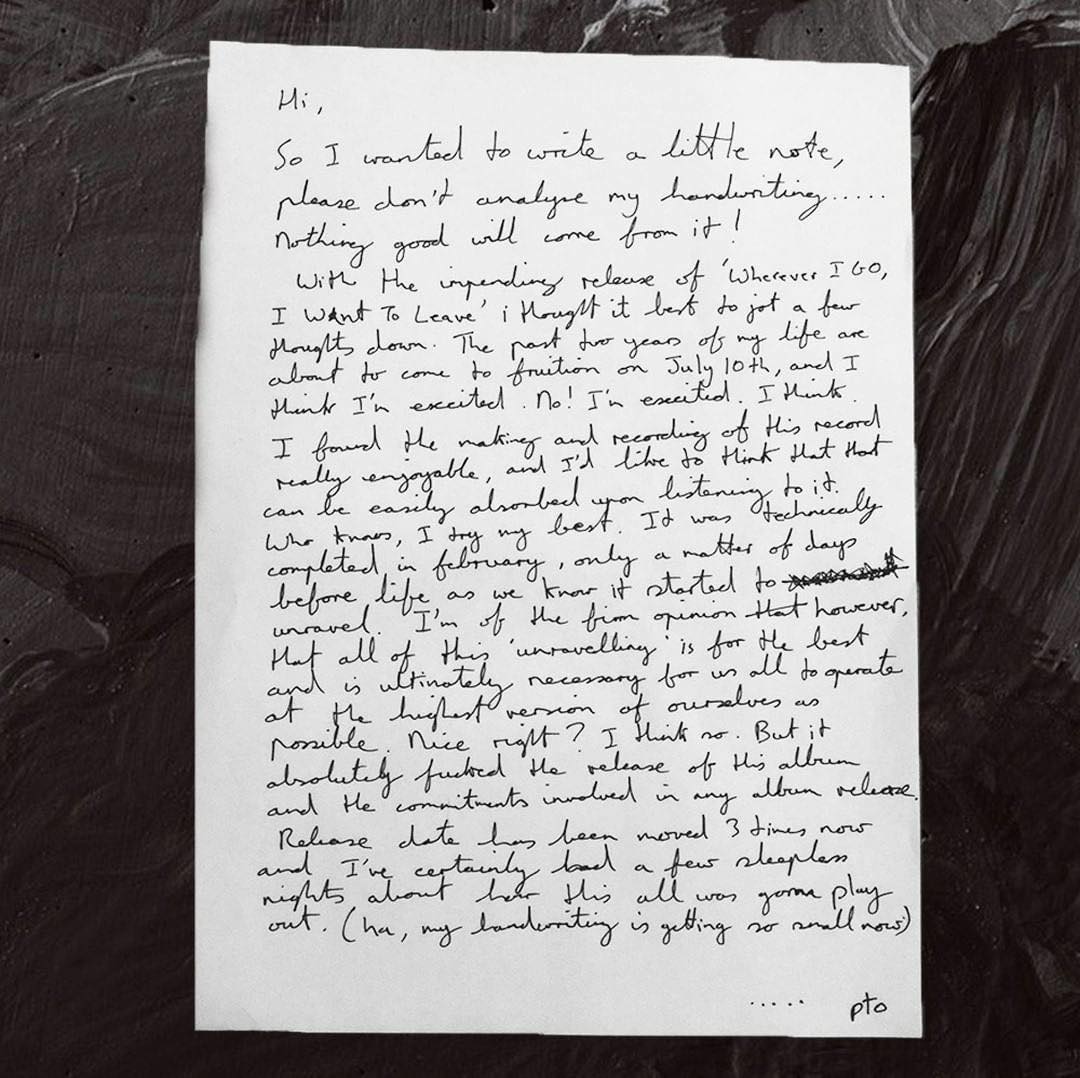 Hi,
So I wanted to write a little note,
please don't analyse my handwriting.....
Nothing good will come from it!
With the impending release of 'Wherever I Go,
I Want To Leave' i thought it best to jot a few
thoughts down. The past two years of my life are
about to come to fruition on July 10th, and I
think I'm excited. No! I'm excited. I think.
I found the making and recording of this record
really enjoyable, and I'd like to think that that
can be easily absorbed upon listening to it.
Who knows, I try my best. It was technically
completed in february, only a matter of days
before life as we know it started to
unravel. I'm of the firm opinion that however,
that all of this 'unravelling' is for the best
and is ultimately necessary for us all to operate
at the highest version of ourselves as
possible. Nice right? I think so. But it
absolutely fucked the release of this album
and the commitments involved in any album release.
Release date has been moved 3 times now
and I've certainly had a few sleepless
nights about how this all was gonna play
out. (ha, my handwriting is getting so small now)
..... pto